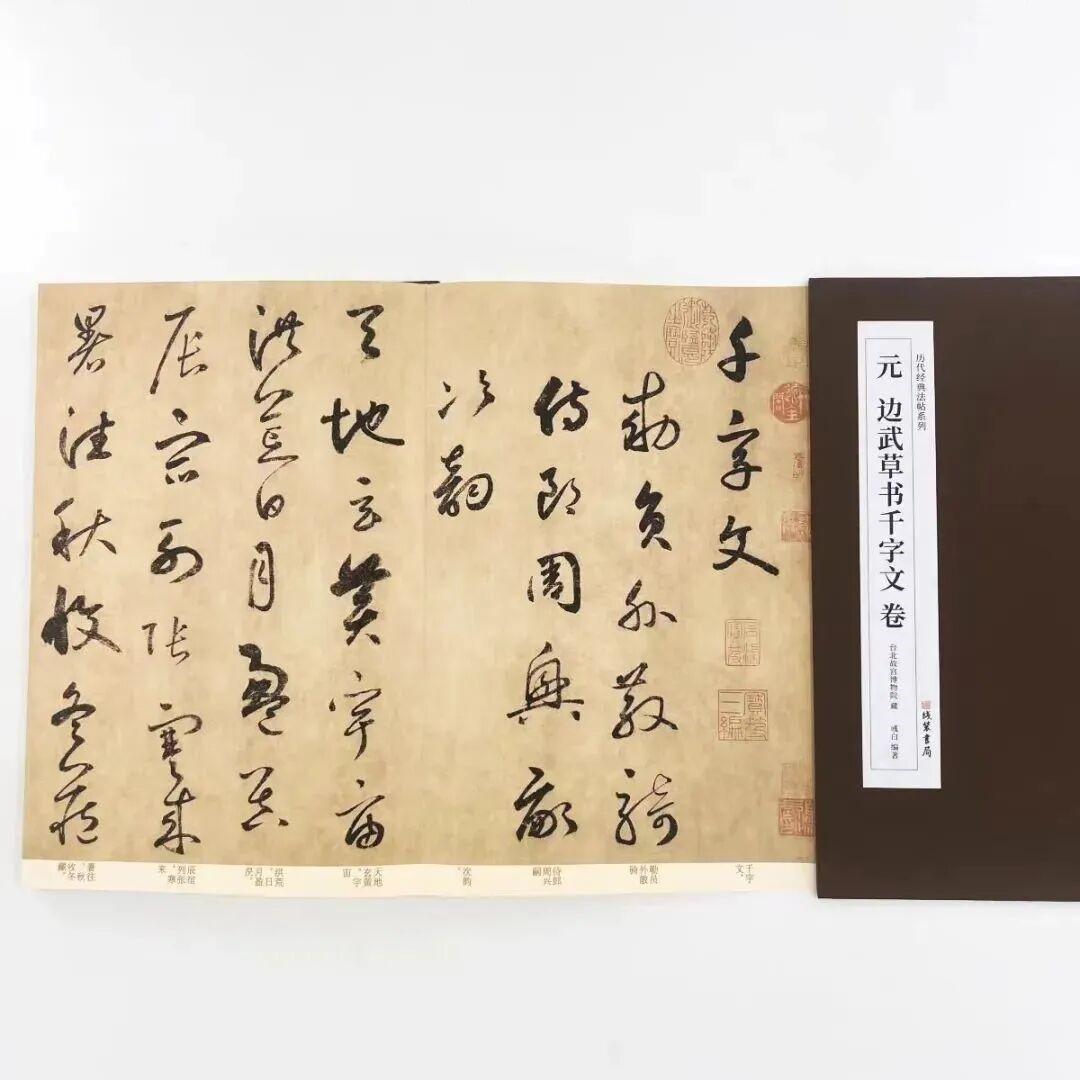 历代经典法帖系列
元 边武草书千字文 卷
台北故宫博物院 藏 戒白 编著
线装书局
千字文
勑員外散騎
侍郎周興嗣
次韻
天地玄黃宇宙
洪荒日月盈昃
辰宿列張寒來
暑往秋收冬藏
千字文。
勒员外散骑
侍郎周兴嗣
次韵。
天地玄黄，宇宙
洪荒。日月盈昃，
辰宿列张。寒来
暑往，秋收冬藏。